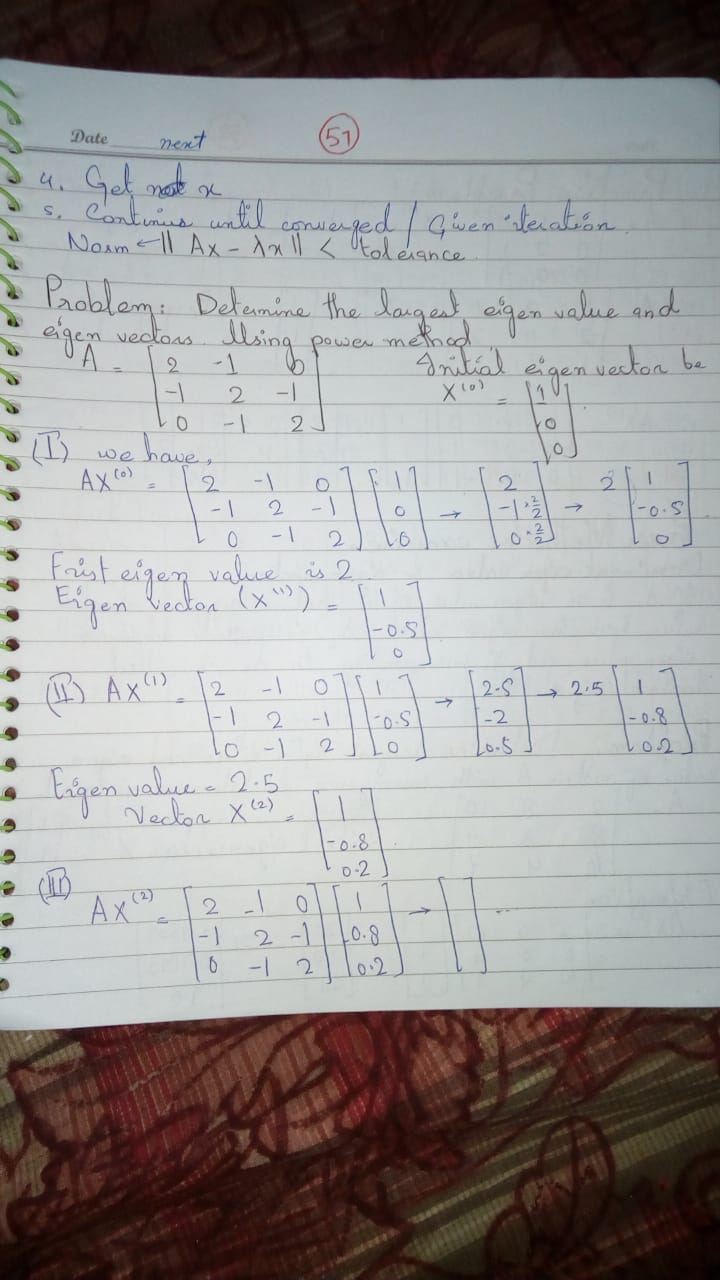 Date next 51
4. Get next x
5. Continius until converged / Given iteration.
Norm ← || Ax - λx || < tolerance.
Problem: Determine the largest eigen value and
eigen vectors. Using power method
A = [2 -1 0; -1 2 -1; 0 -1 2] Initial eigen vector be
X⁽⁰⁾ = [1; 0; 0]
(I) we have,
AX⁽⁰⁾ = [2 -1 0; -1 2 -1; 0 -1 2] [1; 0; 0] → [2; -1×2/2; 0×2/2] → 2 [1; -0.5; 0]
Frist eigen value is 2
Eigen vector (X⁽¹⁾) = [1; -0.5; 0]
(II) AX⁽¹⁾ = [2 -1 0; -1 2 -1; 0 -1 2] [1; -0.5; 0] → [2.5; -2; 0.5] → 2.5 [1; -0.8; 0.2]
Eigen value = 2.5
Vector X⁽²⁾ = [1; -0.8; 0.2]
(III)
AX⁽²⁾ = [2 -1 0; -1 2 -1; 0 -1 2] [1; -0.8; 0.2] → [ ] ...